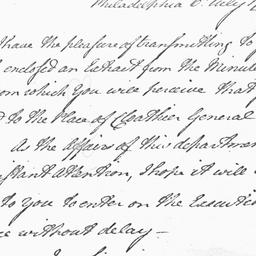 Philadelphia 6. July 1
have the pleasure of transmitting to
enclosed an Extract from the Minute
om which You will perceive that
d to the Place of Cloathier General
As the Affairs of this departmen
stant attention, I hope it will
to You to enter on the Executio
ce without delay —